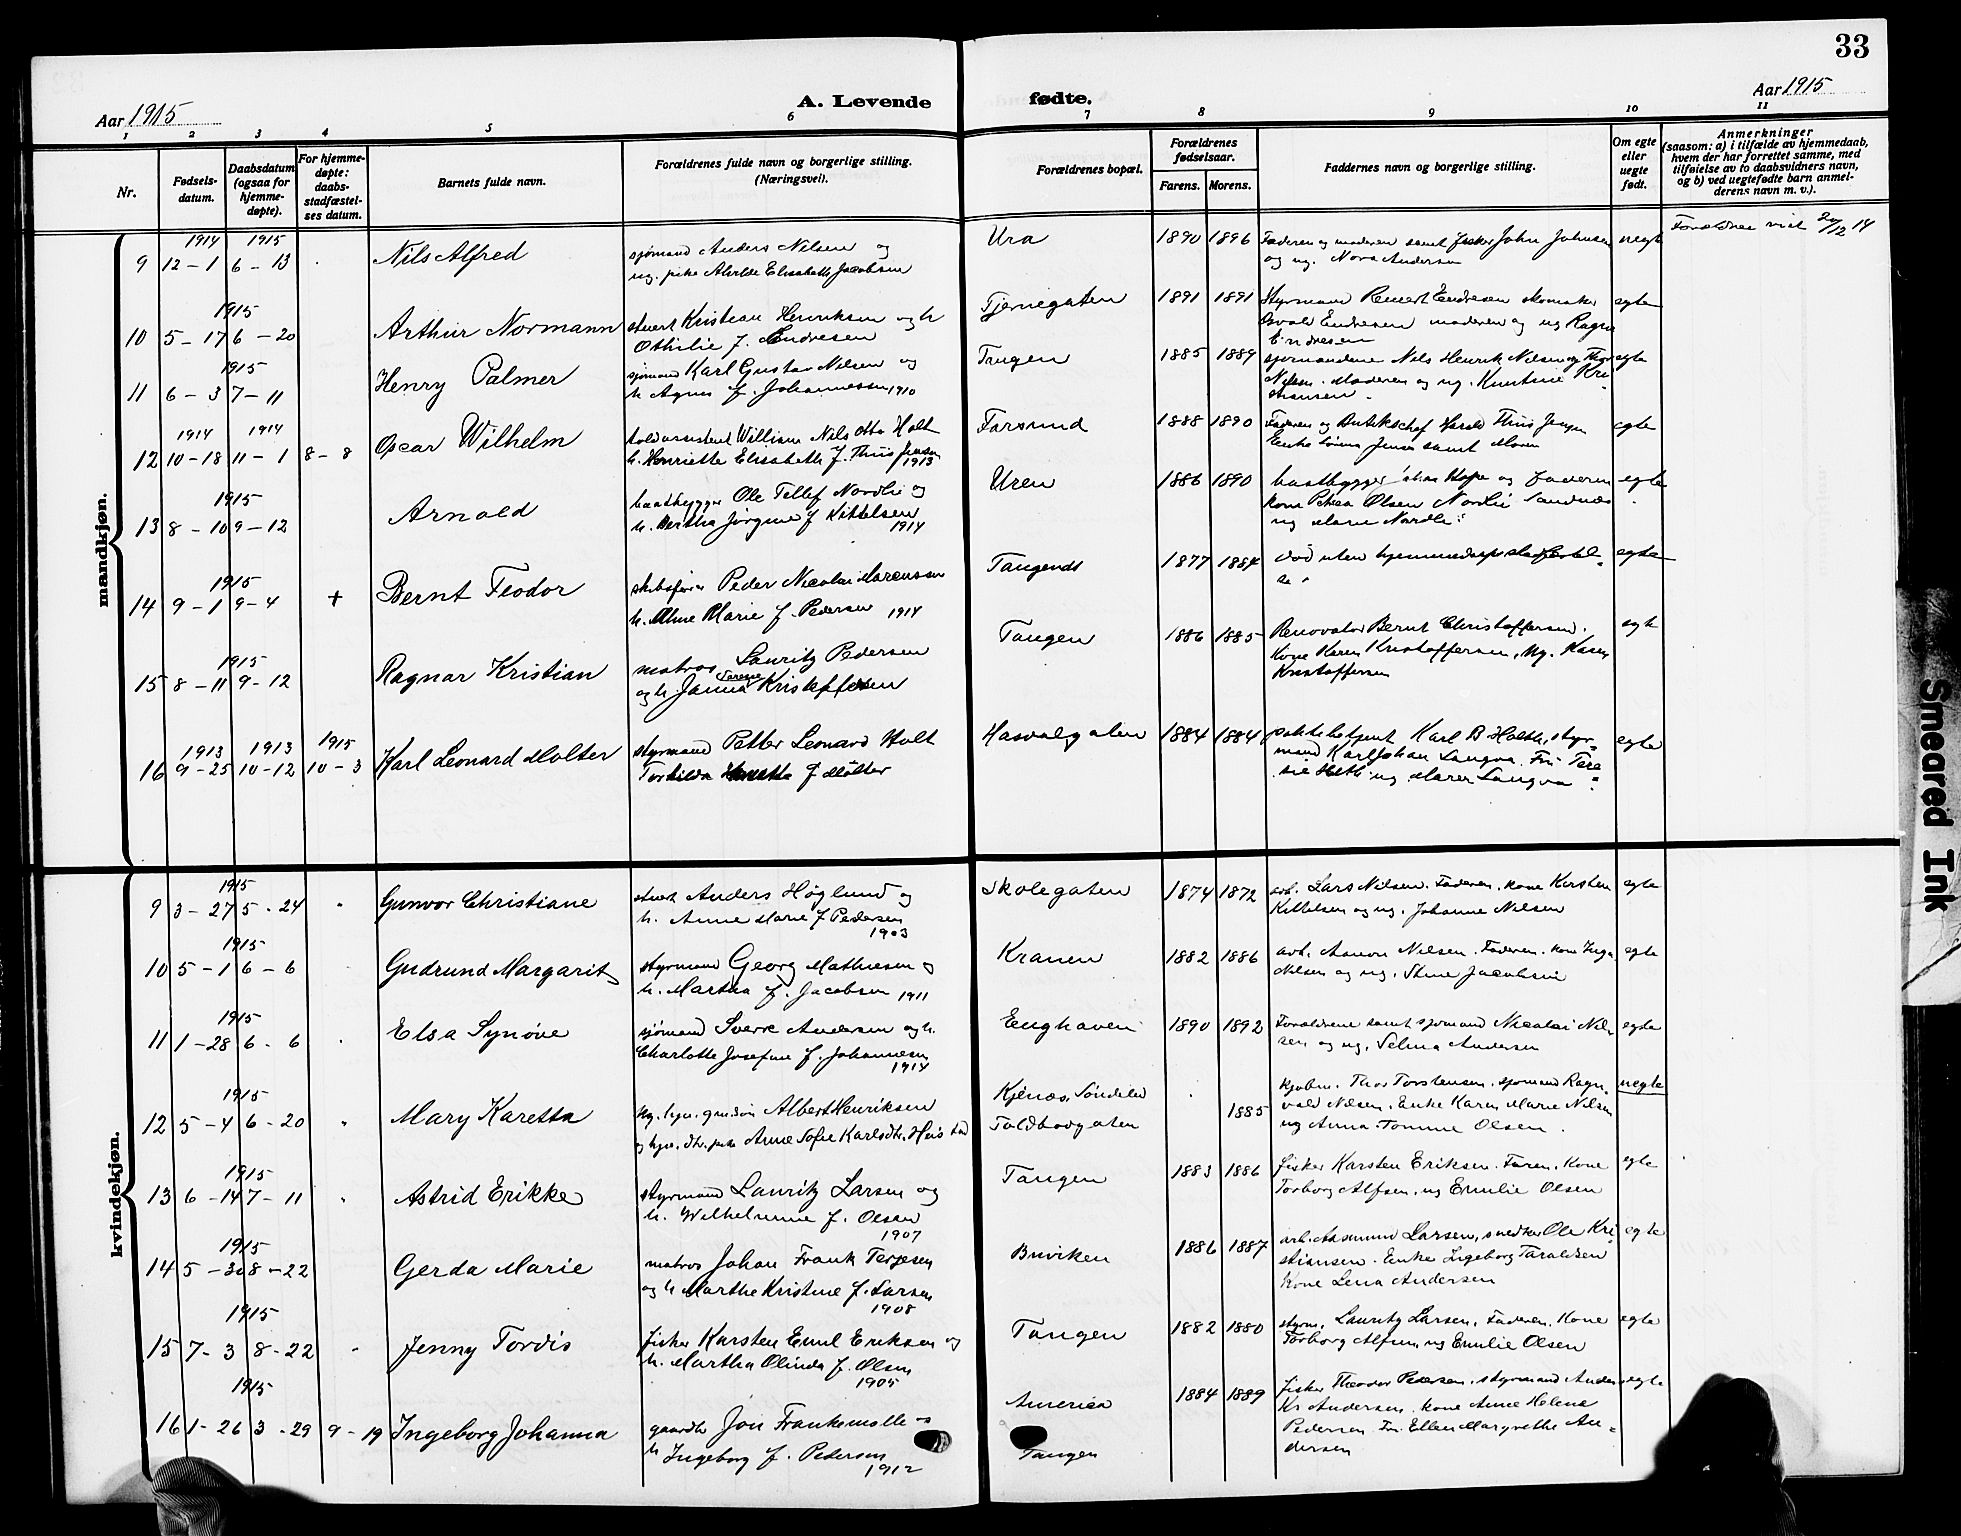 33
Aar 1915
A. Levende
fødte.
Aar 1915
1 2 3 4 5 6 7 8 9 10 11
Nr.
Fødsels-
datum.
Daabsdatum
(ogsaa for
hjemme-
døpte).
For hjemme-
døpte:
daabs-
stadfæstel-
ses datum.
Barnets fulde navn.
Forældrenes fulde navn og borgerlige stilling.
(Næringsvei).
Forældrenes bopæl.
Forældrenes
fødselsaar.
Farens. Morens.
Faddernes navn og borgerlige stilling.
Om egte
eller
uegte
født.
Anmerkninger
(saasom: a) i tilfælde av hjemmedaab,
hvem der har forrettet samme, med
tilføielse av to daabsvidners navn,
og b) ved uegtefødte barn anmel-
derens navn m. v.).
mandkjøn.
1914 1915
9 12-1 6-13 Nils Alfred
sjømand Anders Nilsen og
ug. pike Alvilde Elisabeth Jacobsen
Ura 1890 1896
Faderen og moderen samt fisker John Johnsen
og ug. Nora Andersen
uegte
Forældre viet 20/12 14
1915
10 5-17 6-20 Arthur Normann
stuert Kristian Henriksen og h
Othilie f. Endresen
Tjernegaten 1891 1891
Styrmand Reinert Endresen skomaker
Osvald Endresen moderen og ug Ragna
Endresen
egte
1915
11 6-3 7-11 Henry Palmer
sjømand Karl Gustav Nilsen og
h Agnes f. Johannessen 1910
Tangen 1885 1889
sjømændene Nils Henrik Nilsen og
Nilsen. Moderen og ug. Kri-
stiansen.
egte
1914 1914
12 10-18 11-1 8-8 Oscar Wilhelm
toldassistent William Nils Otto Holt
h. Henriette Elisabeth f. Thiis Jensen
1913
Farsund 1888 1890
Faderen og Butikschef Harald Thiis Jensen
Enke Jensen samt Moren
egte
1915
13 8-10 9-12 Arnold
baatbygger Ole Tellef Nordli og
h. Bertha Jørgine f Kittelsen
1914
Uren 1886 1890
baatbygger og Faderen
kone Petrea Olsen Nordli Sandnæs
ug Marie Nordli
egte
1915
14 9-1 9-4 + Bernt Feodor
skibsfører Peder Nicolai Marcussen
h. Alme Marie f. Pedersen 1914
Tangends 1877 1884
død uten hjemmedaaps stadfæstel-
se.
egte
1915
15 8-11 9-12 Ragnar Kristian
matros Lauritz Pedersen
og h Janna Kristoffersen
Tangen 1886 1885
Renovatør Bernt Christoffersen.
Kone Karen Kristoffersen, ug. Karen
Kristoffersen
egte
1913 1913 1915
16 9-25 10-12 10-3 Karl Leonard Molter
styrmand Petter Leonard Holt
Torhilda f Møller
Hasvalgaten 1884 1884
politibetjent Karl B Holth, styr-
mand Karl Johan Langva. Fru
Holth ug Maren Langva
egte
kvindekjøn.
1915
9 3-27 5-24 Gunvor Christiane
stuert Anders Høglund og
h. Anne Marie f Pedersen
1903
Skolegaten 1874 1872
arb. Lars Nilsen. Faderen. kone Kirsten
Kittelsen og ug. Johanne Nilsen
egte
1915
10 5-1 6-6 Gudrund Margarit
styrmand Georg Mathiesen og
h. Martha f. Jacobsen 1911
Kranen 1882 1886
arb. Aanon Nilsen. Faderen. kone Inga
Nilsen og ug. Stine Jacobsen
egte
1915
11 1-28 6-6 Elsa Synøve
sjømand Sverre Andersen og h.
Charlotte Josefine f. Johannesen
1914
Enghaven 1890 1892
Forældrene samt sjømand Nicolai Nil-
sen og ug. Selma Andersen
egte
1915
12 5-4 6-20 Mary Karetta
ug. hjv. grdsøn Albert Henriksen
og hjv. dtr. pike Anne Sofie Karlsdtr.
Kjenæs, Søndeled
Toldbodgaten 1885
kjøbm. Thor Torstensen. sjømand Ragn-
vald Nilsen. Enke Karen Marie Nilsen
ug Anna Tomine Olsen.
uegte
1915
13 6-14 7-11 Astrid Erikke
styrmand Lauritz Larsen og
h. Wilhelmine f. Olsen
1907
Tangen 1883 1886
fisker Karsten Eriksen. Faren. Kone
Torborg Alfsen. ug Emilie Olsen
egte
1915
14 5-30 8-22 Gerda Marie
matros Johan Frank Terjesen
og h Marthe Kristine f. Larsen
1908
Buviken 1886 1887
arb. Aasmund Larsen, snedker Ole Kri-
stiansen. Enke Ingeborg Taraldsen
Kone Lena Andersen
egte
1915
15 7-3 8-22 Jenny Tordis
fisker Karsten Emil Eriksen og
h. Martha Olinda f. Olsen
1905
Tangen 1882 1880
styrm. Lauritz Larsen. Faderen. Kone
Torborg Alfsen, ug Emilie Olsen
egte
1915
16 1-26 3-29 9-19 Ingeborg Johanna
gaardbr Jon Franksmolle og
h Ingeborg f. Pedersen
1912
America
Tangen 1884 1889
fisker Theodor Pedersen. styrmand Anders
Kr Andersen. kone Anne Helene
Pedersen Fru Ellen Margrethe An-
dersen
egte
Smeared Ink